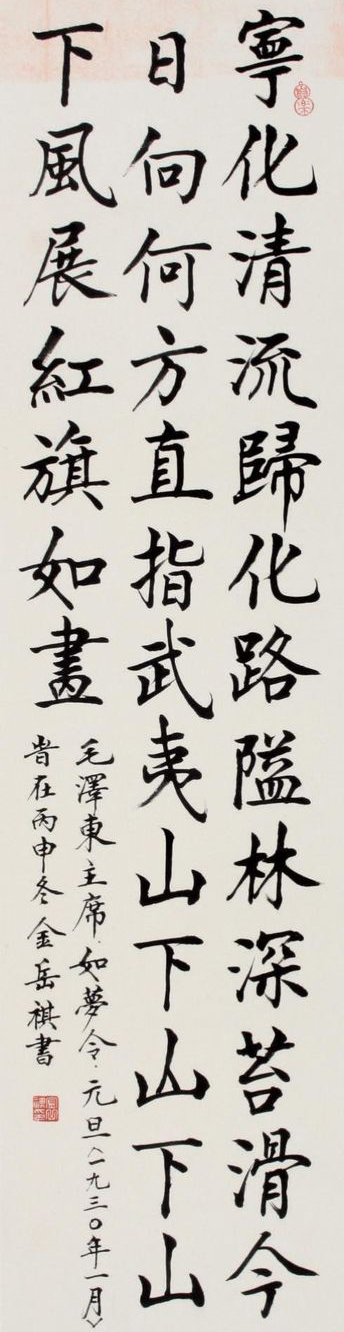 寧化清流歸化路隘林深苔滑今
日向何方直指武夷山下山下山
下風展紅旗如畫
毛澤東主席·如夢令·元旦〈一九三〇年一月〉
旹在丙申冬金岳祺書